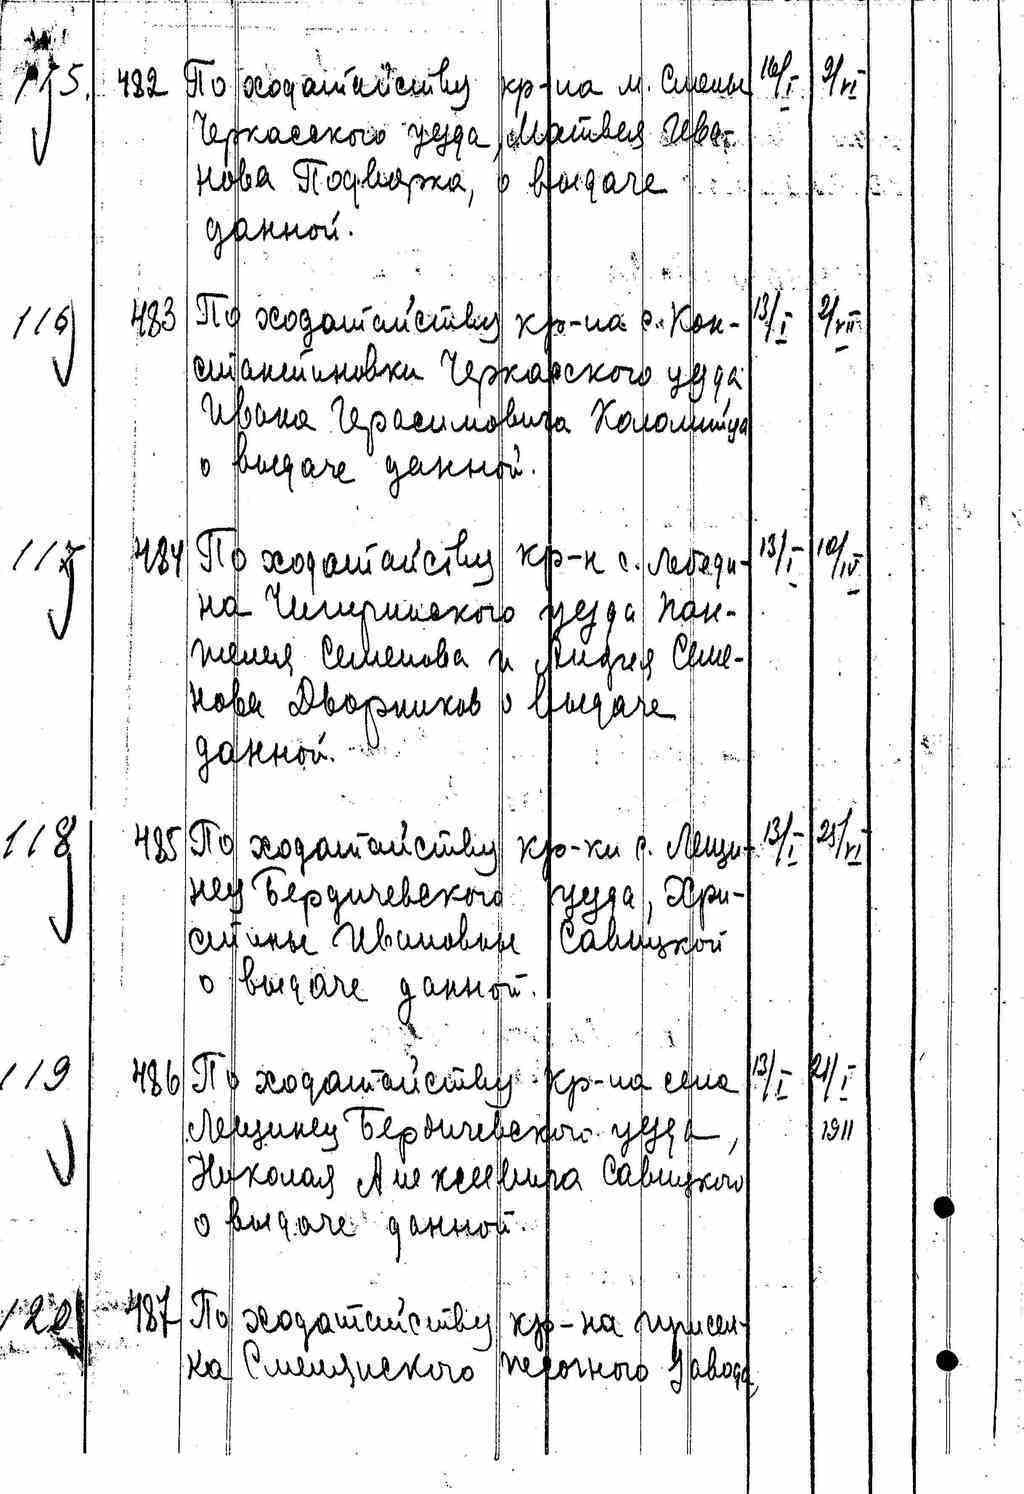 115. 482 По ходатайству кр-на м. Смелы 16/I 9/VI
Черкасского уезда, Матвея Ива-
нова Подвирка, о выдаче
данной.
116 483 По ходатайству кр-на с. Кон- 13/I 2/VII
стантиновки Черкасского уезда
Ивана Герасимовича Коломийца
о выдаче данной.
117 484 По ходатайству кр-н с. Лебеди- 13/I 10/IV
на Чигиринского уезда Пан-
телея Семенова и Андрея Семе-
нова Дворников о выдаче
данной.
118 485 По ходатайству кр-ки с. Лещи- 13/I 25/VI
нец Бердичевского уезда, Хри-
стины Ивановны Савицкой
о выдаче данной.
119 486 По ходатайству кр-на села 13/I 21/I
Лещинец Бердичевского уезда, 1911
Николая Алексеевича Савицкого
о выдаче данной.
120 487 По ходатайству кр-на присел-
ка Смелянского завода,